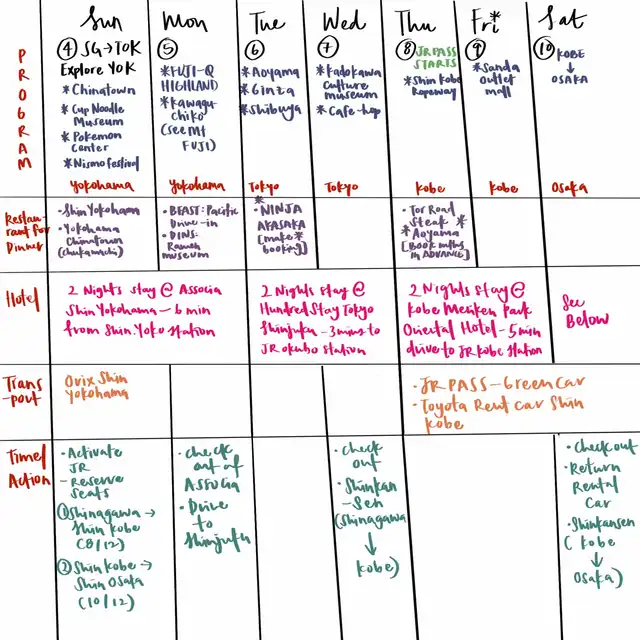 Sun Mon Tue Wed Thu Fri* Sat
PROGRAM
④ SG→TOK
Explore YOK
* Chinatown
* Cup Noodle
Museum
* Pokemon
Center
* Nismo festival
Yokohama
⑤
*FUJI-Q
HIGHLAND
*Kawagu-
chiko
(see MT
FUJI)
Yokohama
⑥
*Aoyama
*Ginza
*Shibuya
Tokyo
⑦
*Kadokawa
Culture
museum
*Cafe-hop
Tokyo
⑧ JR PASS
STARTS
*Shin Kobe
Ropeway
Kobe
⑨
*Sanda
Outlet
mall
Kobe
⑩ KOBE
↓
OSAKA
Osaka
Restau-
rant for
Dinner
• Shin Yokohama
• Yokohama
Chinatown
(chukamachi)
• BEAST: Pacific
Drive-in
• DINS:
Ramen
museum
*
• NINJA
AKASAKA
[make*
booking]
• Tor Road
Steak *
* Aoyama
[Book mths
in ADVANCE]
Hotel
2 Nights stay @ Associa
Shin Yokohama – 6 min
from Shin.Yoko station
2 Nights stay @
Hundred Stay Tokyo
Shinjuku – 3 mins to
JR Okubo station
2 Nights stay @
Kobe Meriken Park
Oriental Hotel – 5 min
drive to JR Kobe station
See
Below
Trans
-port
Orix Shin
Yokohama
• JR PASS – Green Car
• Toyota Rent car Shin
Kobe
Time/
Action
• Activate
JR
– Reserve
seats
① Shinagawa →
Shin Kobe
(8/12)
② Shin Kobe →
Shin Osaka
(10/12)
• Check
out of
ASSOCIA
• Drive
to
Shinjuku
• Check
out
• Shinkan
-sen
(Shinagawa
↓
Kobe)
• Check out
• Return
Rental
Car
• Shinkansen
(Kobe
↓
Osaka)